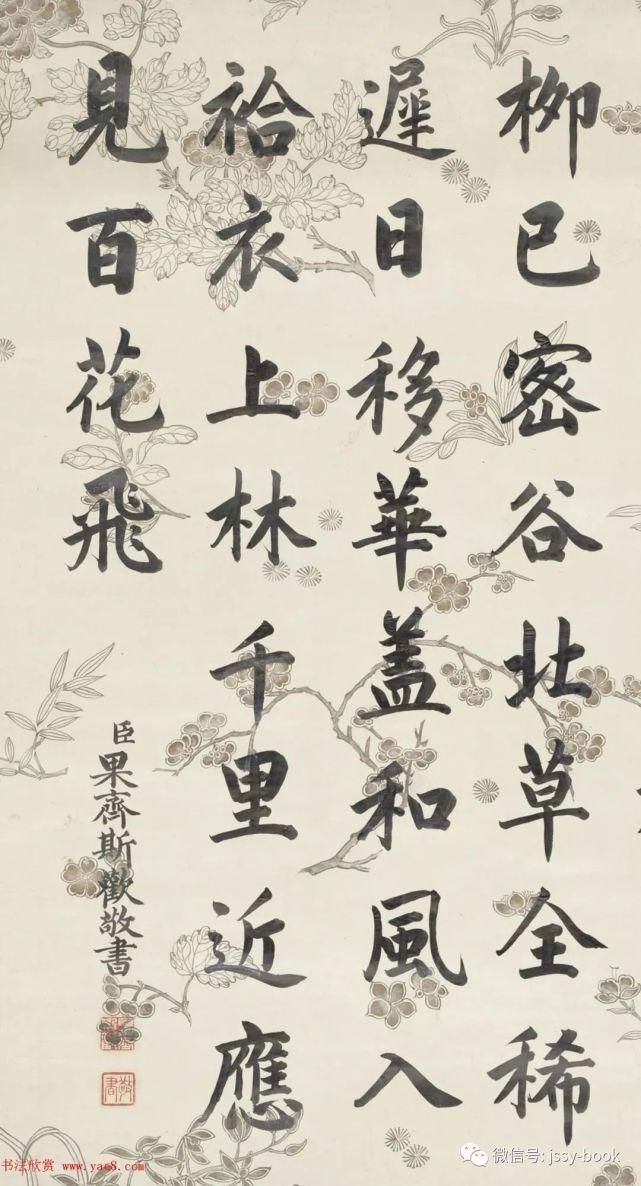 柳已密谷北草全稀
遲日移華蓋和風入
袷衣上林千里近應
見百花飛
臣果齊斯歡敬書
敬書
书法欣赏 www.yac8.com
微信号: jssy-book